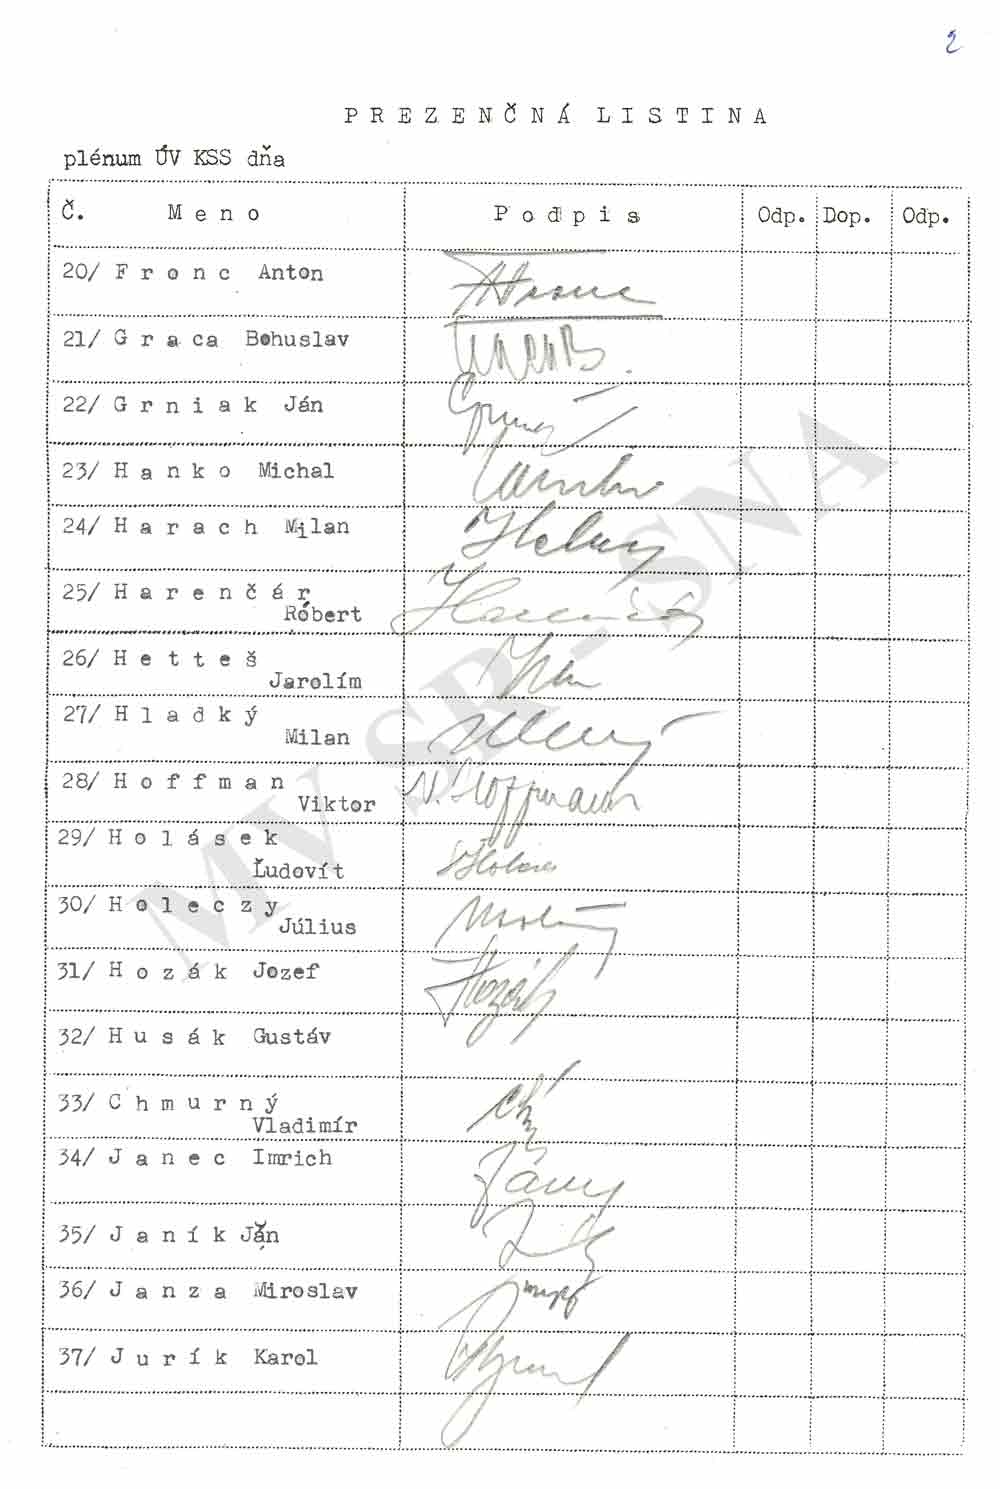 2
PREZENČNÁ LISTINA
plénum ÚV KSS dňa
Č. Meno Podpis Odp. Dop. Odp.
20/ Fronc Anton
21/ Graca Bohuslav
22/ Grniak Ján
23/ Hanko Michal
24/ Harach Milan
25/ Harenčár
Róbert
26/ Hetteš
Jarolím
27/ Hladký
Milan
28/ Hoffman
Viktor V. Hoffmann
29/ Holásek
Ľudovít
30/ Holeczy
Július
31/ Hozák Jozef Hozák
32/ Husák Gustáv
33/ Chmurný
Vladimír
34/ Janec Imrich
35/ Janík Ján
36/ Janza Miroslav
37/ Jurík Karol
MV SR - SNA